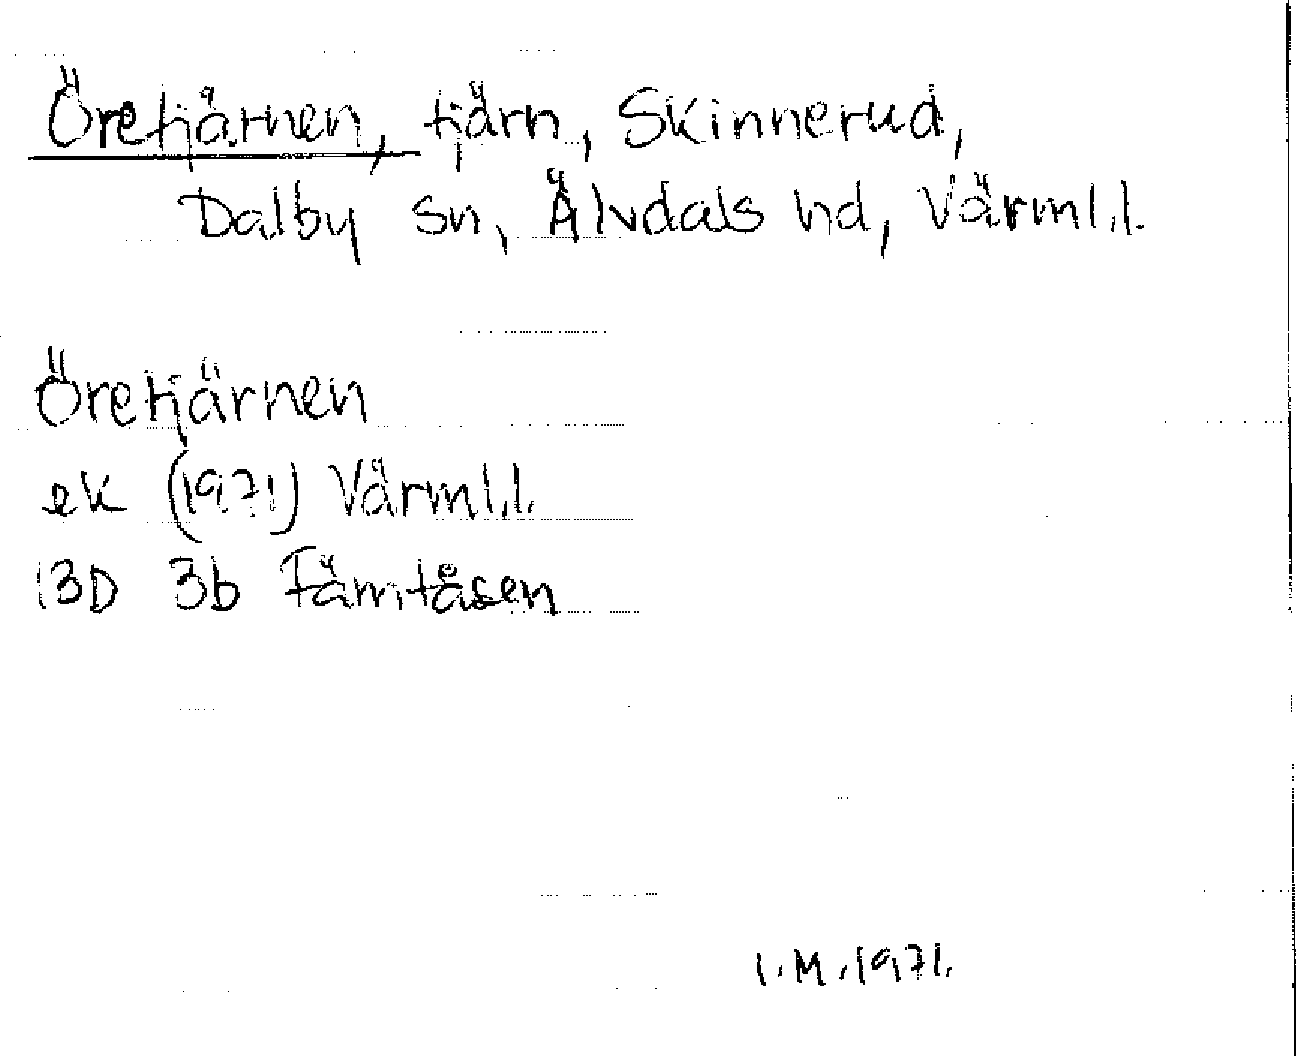 Öretjärnen, tjärn, Skinnerud,
Dalby sn, Älvdals hd, Värml.l.
Öretjärnen
ek (1971) Värml.l.
13D 3b Fämtåsen
I.M.1971.